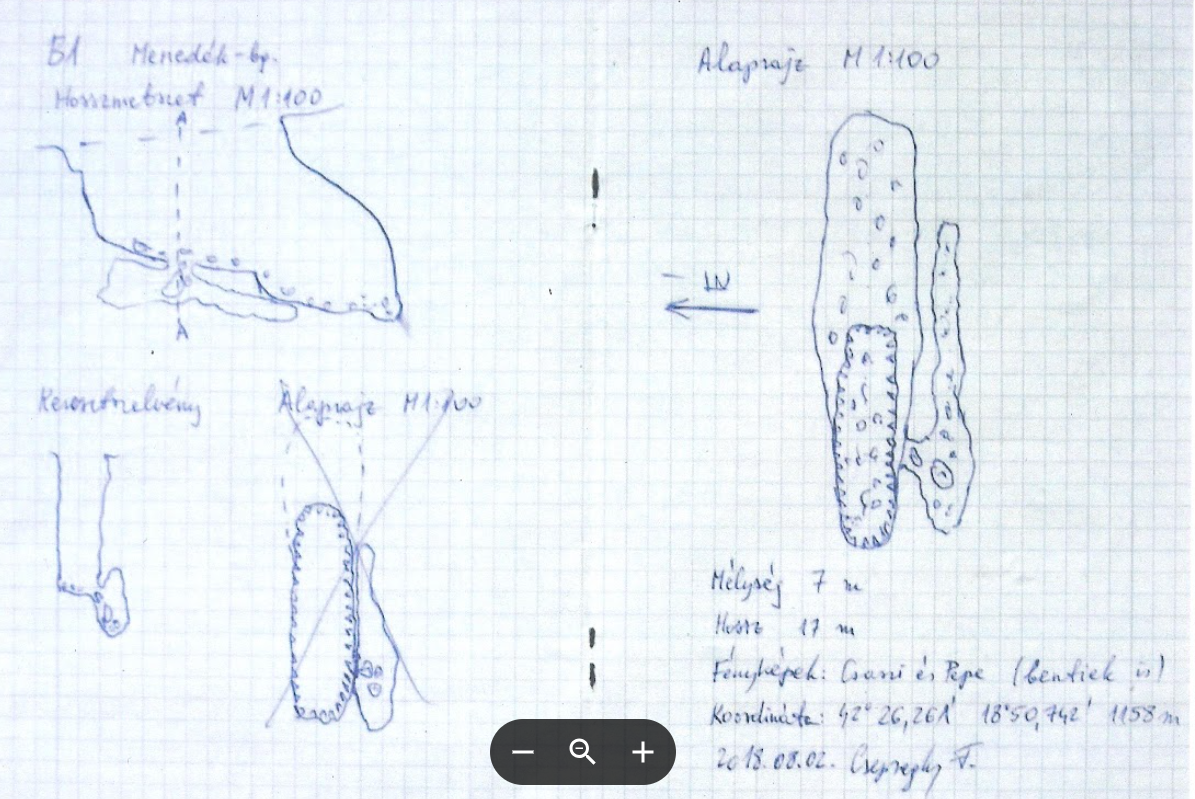 51 Menedék-bg.
Hosszmetszet M 1:100
A
A
Keresztszelvény
Alaprajz M 1:100
Alaprajz M 1:100
É
Mélység 7 m
Hossz 17 m
Fényképek: Csaszi és Pepe (bentiek is)
Koordináta: 42° 26,261' 18°50,742' 1158 m
2018.08.02. F.